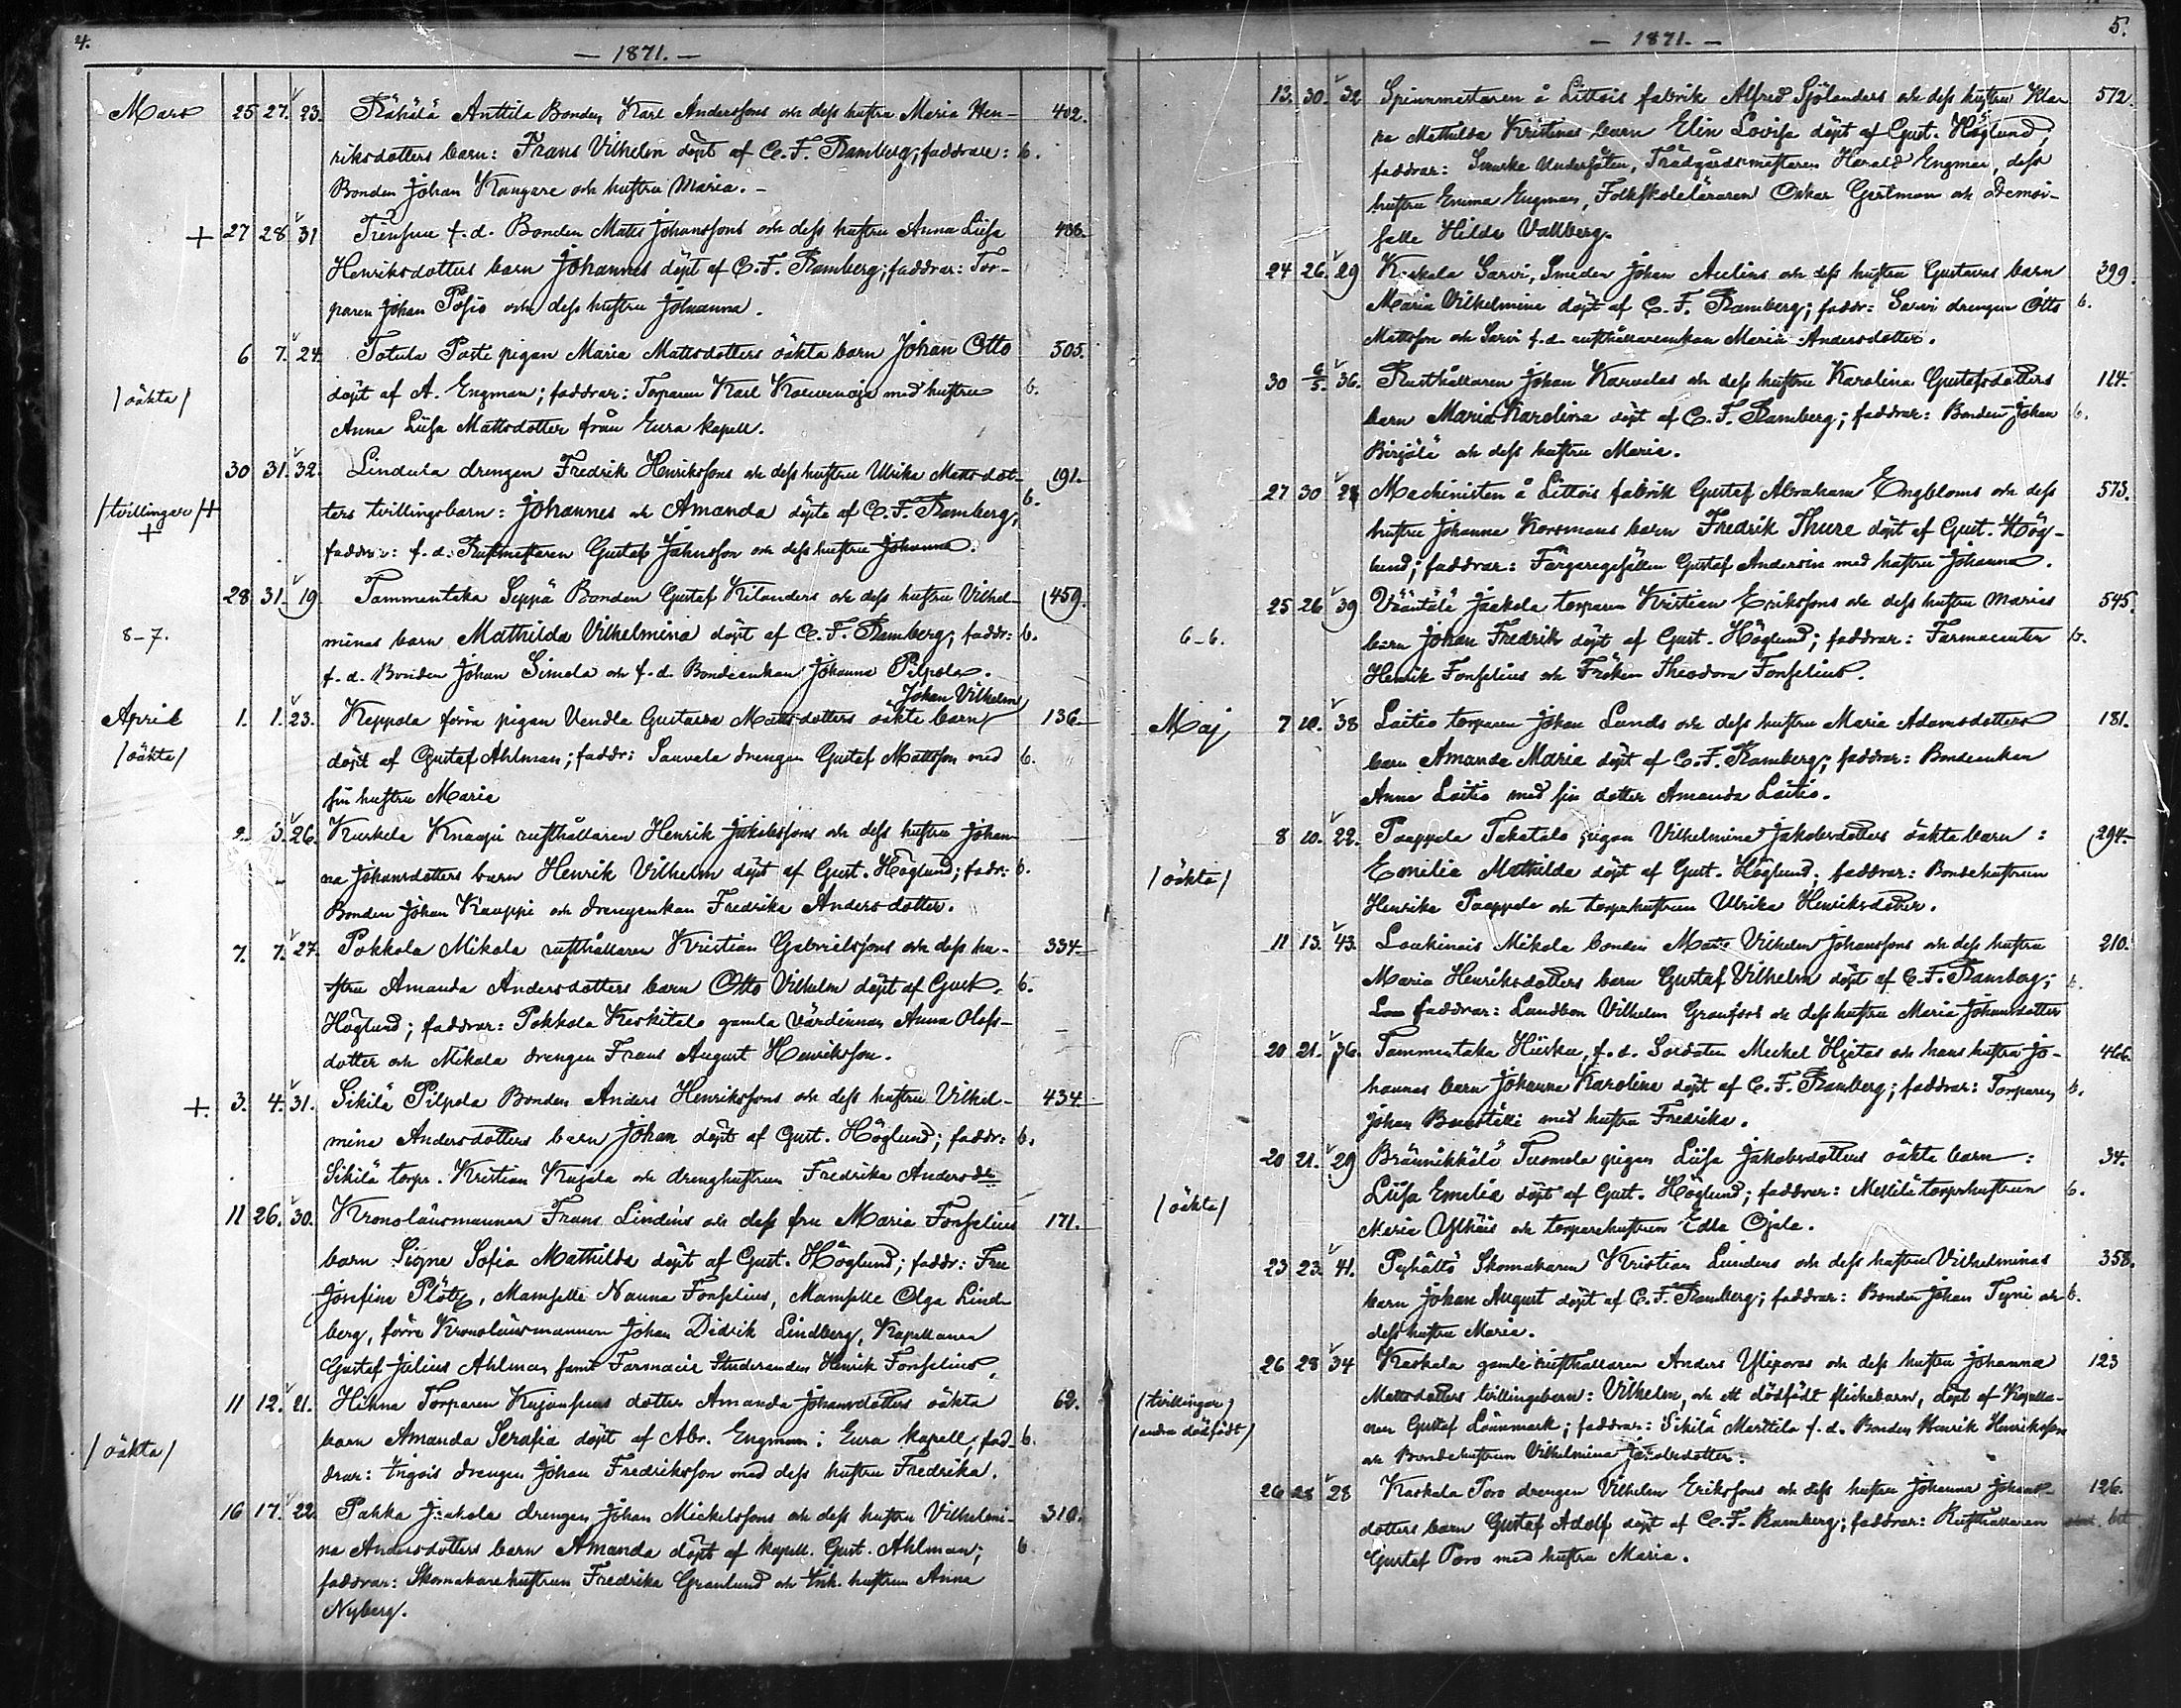 4.
— 1871. —
Mars 25 27. 23. Räkälä Anttila Bonden Karl Anderssons och dess hustru Maria Hen- 402.
riksdotters barn: Frans Vilhelm döpt af C. F. Ramberg; faddrar: b.
Bonden Johan Kangare och hustru Maria. –
+ 27 28 31 f. d. Bonden Matts Johanssons och dess hustru Anna Liisa 486.
Henriksdotters barn Johannes döpt af C. F. Ramberg; faddrar: Tor-
paren Johan och dess hustru Johanna.
6 7. 24. Totula pigan Maria Mattsdotters oäkta barn Johan Otto 505.
/oäkta/ döpt af A. Engman; faddrar: Torparen Karl med hustru b.
Anna Liisa Mattsdotter från Eura kapell.
30 31. 32. Lindula drengen Fredrik Henrikssons och dess hustru Ulrika Mattsdot- 191.
/tvillingar/ + ters tvillingbarn: Johannes och Amanda döpta af C. F. Ramberg, b.
+ faddrar: f. d. Gustaf Johnsson och dess hustru Johanna.
28 31. 19 Tammentaka Seppä Bonden Gustaf Kilanders och dess hustru Vilhel- 459.
8–7. minas barn Mathilda Vilhelmina döpt af C. F. Ramberg; faddr: b.
f. d. Bonden Johan Simola och f. d. Bondeenkan Johanna Pilpola.
Johan Vilhelm
April 1. 1. 23. Keppola förra pigan Vendla Gustava Mattsdotters oäkta barn 136.
/oäkta/ döpt af Gustaf Ahlman; faddr: Sauvala drengen Gustaf Mattsson med b.
sin hustru Maria
2. 3. 26. Kurkela Knaapi rusthållaren Henrik Jakobssons och dess hustru Johan-
na Johansdotters barn Henrik Vilhelm döpt af Gust. Höglund; fadr: b.
Bonden Johan Kauppi och drengenkan Fredrika Andersdotter.
7. 7. 27. Pokkola Mikola rusthållaren Kristian Gabrielssons och dess hu- 334.
stru Amanda Andersdotters barn Otto Vilhelm döpt af Gust. b.
Höglund; faddrar: Pokkola Keskitalo gamla värdinnan Anna Olofs-
dotter och Mikola drengen Frans August Henriksson.
+ 3. 4. 31. Sikilä Pilpola Bonden Anders Henrikssons och dess hustru Vilhel- 434.
mina Andersdotters barn Johan döpt af Gust. Höglund; faddr: b.
Sikilä torpr. Kristian Kujala och drenghustrun Fredrika Andersdr
11 26. 30. Kronolänsmannen Frans Lindéns och dess fru Maria Fonselius 171.
barn Signe Sofia Mathilda döpt af Gust. Höglund; faddr: Fru
Josefine, Mamselle Nanna Fonselius, Mamselle Olga Lind-
berg, förre Kronolänsmannen Johan Didrik Lindberg, Kapellanen
Gustaf Julius Ahlman samt Farmacie Studeranden Henrik Fonselius,
11 12. 21. Hihna Torparen dotter Amanda Johansdotters oäkta 62.
/oäkta/ barn Amanda Serafia döpt af Abr. Engman i Eura kapell; fad- b.
drar: drengen Johan Fredriksson med dess hustru Fredrika.
16 17. 22. Pahka Jaakola drengen Johan Mickelssons och dess hustru Vilhelmi- 310.
na Andersdotters barn Amanda döpt af kapell. Gust. Ahlman; b
faddrar: Skomakarehustrun Fredrika Granlund och Inh. hustrun Anna
Nyberg.
5.
— 1871. —
13. 30. 32 Spinnmästaren å Littois fabrik Alfred Sjölanders och dess hustru Kla- 572.
ra Mathilda Kristinas barn Elin Lovisa döpt af Gust. Höglund;
faddrar: Svenske Undersåten, Trädgårdsmästaren Harald Engman, dess
hustru Emma Engman, Folkskoleläraren Oskar Gertman och Demoi-
selle Hilda Vallberg.
24 26. 29 Kaskala Sarvi, Smeden Johan Aulins och dess hustru Gustavas barn 399.
Maria Vilhelmina döpt af C. F. Ramberg; faddr: Sarvi drengen Otto b.
Mattsson och Sarvi f. d. rusthållareenkan Maria Andersdotter.
30 6/5. 36. Rusthållaren Johan Karvelas och dess hustru Karolina Gustafsdotters 114.
barn Maria Karolina döpt af C. F. Ramberg; faddrar: Bonden Johan b.
Birjälä och dess hustru Maria.
27 30 28 Machinisten å Littois fabrik Gustaf Abraham Engbloms och dess 573.
hustru Johanna Korsmans barn Fredrik Thure döpt af Gust. Hög-
lund; faddrar: Färgaregesällen Gustaf Andersin med hustru Johanna.
25 26 39 Vääntälä Jaakola torparen Kristian Erikssons och dess hustru Marias 545.
6–6. barn Johan Fredrik döpt af Gust. Höglund; faddrar: Farmaceuten b.
Henrik Fonselius och Fröken Theodora Fonselius.
Maj 7 10. 38 Laitio torparen Johan Lunds och dess hustru Maria Adamsdotters 181.
barn Amanda Maria döpt af C. F. Ramberg; faddrar: Bondeenkan
Anna Laitio med sin dotter Amanda Laitio.
8 10. 22. Paappala Takatalo pigan Vilhelmina Jakobsdotters oäkta barn: 294.
/oäkta/ Emilia Mathilda döpt af Gust. Höglund; faddrar: Bondehustrun
Henrika Paappala och torparhustrun Ulrika Henriksdotter.
11 13. 43. Loukinais Mikola bonden Matts Vilhelm Johanssons och dess hustru 210.
Maria Henriksdotters barn Gustaf Vilhelm döpt af C. F. Ramberg; b.
faddrar: Landbon Vilhelm Granfors och dess hustru Maria Johansdotter
20 21. 36. Tammentaka Hiiska, f. d. Soldaten Meckel Hjetas och hans hustru Jo- 466.
hannas barn Johanna Karolina döpt af C. F. Ramberg; faddrar: Torparen b.
Johan med hustru Fredrika.
20 21. 29 Bränikkälä Tuomola pigan Liisa Jakobsdotters oäkta barn: 34.
/oäkta/ Liisa Emelia döpt af Gust. Höglund; faddrar: Mellilä torparhustrun b.
Maria och torparehustrun Edla Ojala.
23 23. 41. Pyhältö Skomakaren Kristian Lundens och dess hustru Vilhelminas 358.
barn Johan August döpt af C. F. Ramberg; faddrar: Bonden Johan Tyni och b.
dess hustru Maria.
26 28 34 Kaskala gamle rusthållaren Anders Ylipovas och dess hustru Johanna 123
(tvillingar) Mattsdotters tvillingebarn: Vilhelm, och ett dödfödt flickebarn, döpt af Kapella-
(andra dödfödt) nen Gustaf Lönnmark; faddrar: Sikilä Marttila f. d. Bonden Henrik Henriksson
och Bondehustrun Vilhelmina Jakobsdotter.
26 28 28 Kaskala Poro drengen Vilhelm Erikssons och dess hustru Johanna Johans- 126.
dotters barn Gustaf Adolf döpt af C. F. Ramberg; faddrar: Rusthållaren
Gustaf Poro med hustru Maria.